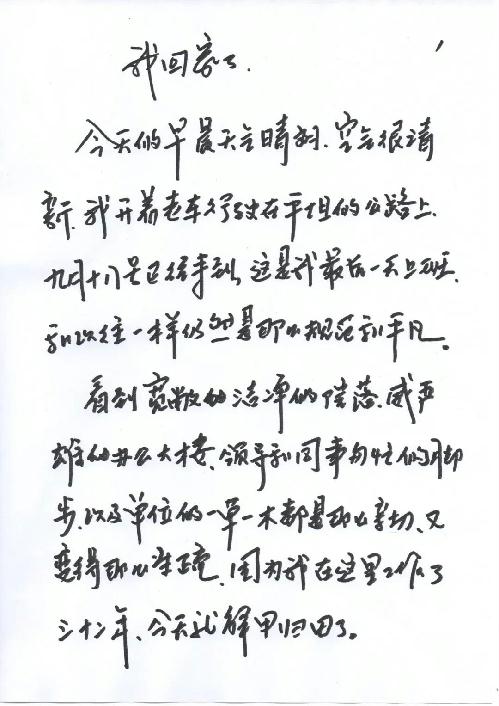 我回家了.
今天的早晨天气晴朗.空气很清
新.我开着老车行驶在平坦的公路上.
九月十八号已经来到,这是我最后一天上班.
和以往一样仍然是那么规范和平凡。
看到宽敞的洁净的院落.威严
雄的办公大楼、领导和同事匆忙的脚
步.以及单位的一草一木都是那么亲切、又
变得那么生疏,因为我在这里工作了
三十二年、今天就解甲归田了。